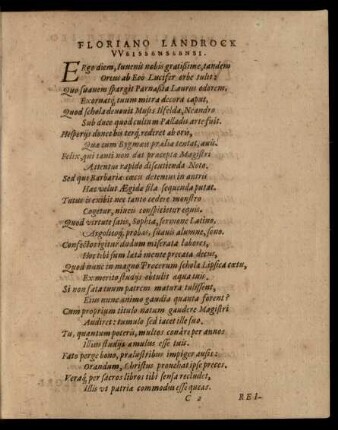 FLORIANO LANDROCK
VVEISSENSEENSI.
ERgo diem, Iuvenis nobis gratissime, tandem
Orens ab Eoo Lucifer orbe tulit:
Quo suavem spargit Parnassia Laurus odorem,
Exornatq; tuum mitra decora caput,
Quod schola devovit Musis Ilfelda, Neandro
Sub duce quod cultum Palladis arte fuit.
Hesperijs donec bis terq; rediret ab oris,
Quae cum Pygmaeis praelia tentat, avis.
Felix, qui tanti non dat praecepta Magistri
Attentus rapido discutienda Noto.
Sed qui Barbariae caecis detentus in antris
Hac volut Aegide sibi sequenda putat.
Tutus is exibit nec tanto cedere monstro
Cogetur, niveis conspicietur equis.
Quod virtute satis, Sophia, sermone Latino,
Argolicoq; probas, suavis alumne, sono.
Consultor igitur dudum miserata labores,
Hoc tibi jam lata nunc precata decus,
Quod nunc in magno Procerum schola Lipsica coetu,
Ex merito studijs obtulit aqua tuis.
Si non fata tuum patrem matura tulissent,
Eius nunc animo gaudia quanta forent?
Cum proprium titulo natum gaudere Magistri
Audiret: tumulo sed jacet ille suo.
Tu, quantum poteris, multos condere per annos
Illius studijs amulus esse tuis.
Fato perge bono, praelustribus impiger ausis:
Orandum, Christus pronchat ipse preces.
Veraq; per sacros libros tibi sensa recludet,
Illis ut patriae commodus esse queas.
C 2 REI-